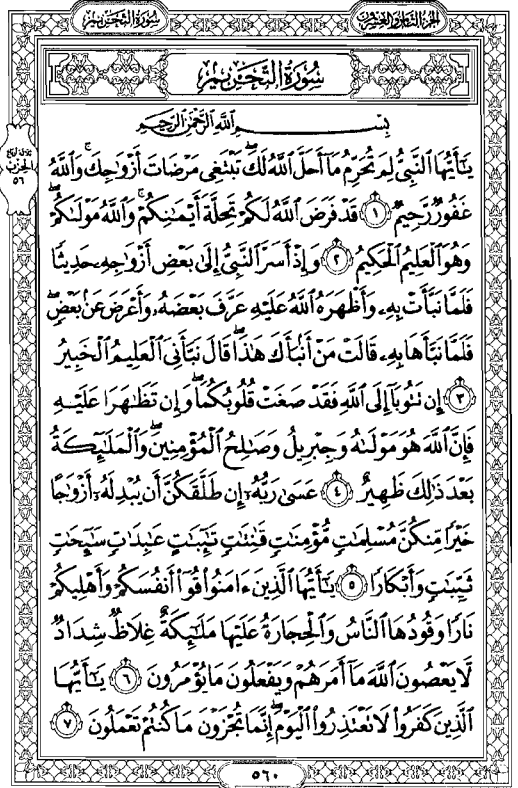 سُورَةُ التَّحْرِيمِ
الجُزْءُ الثَّامِنُ وَالعِشْرُونَ
سُورَةُ التَّحْرِيمِ
بِسْمِ ٱللَّهِ ٱلرَّحْمَٰنِ ٱلرَّحِيمِ
يَٰٓأَيُّهَا ٱلنَّبِىُّ لِمَ تُحَرِّمُ مَآ أَحَلَّ ٱللَّهُ لَكَ ۖ تَبْتَغِى مَرْضَاتَ أَزْوَٰجِكَ ۚ وَٱللَّهُ
غَفُورٌ رَّحِيمٌ ١ قَدْ فَرَضَ ٱللَّهُ لَكُمْ تَحِلَّةَ أَيْمَٰنِكُمْ ۚ وَٱللَّهُ مَوْلَىٰكُمْ ۖ
وَهُوَ ٱلْعَلِيمُ ٱلْحَكِيمُ ٢ وَإِذْ أَسَرَّ ٱلنَّبِىُّ إِلَىٰ بَعْضِ أَزْوَٰجِهِۦ حَدِيثًا
فَلَمَّا نَبَّأَتْ بِهِۦ وَأَظْهَرَهُ ٱللَّهُ عَلَيْهِ عَرَّفَ بَعْضَهُۥ وَأَعْرَضَ عَنۢ بَعْضٍ ۖ
فَلَمَّا نَبَّأَهَا بِهِۦ قَالَتْ مَنْ أَنۢبَأَكَ هَٰذَا ۖ قَالَ نَبَّأَنِىَ ٱلْعَلِيمُ ٱلْخَبِيرُ
٣ إِن تَتُوبَآ إِلَى ٱللَّهِ فَقَدْ صَغَتْ قُلُوبُكُمَا ۖ وَإِن تَظَٰهَرَا عَلَيْهِ
فَإِنَّ ٱللَّهَ هُوَ مَوْلَىٰهُ وَجِبْرِيلُ وَصَٰلِحُ ٱلْمُؤْمِنِينَ ۖ وَٱلْمَلَٰٓئِكَةُ
بَعْدَ ذَٰلِكَ ظَهِيرٌ ٤ عَسَىٰ رَبُّهُۥٓ إِن طَلَّقَكُنَّ أَن يُبْدِلَهُۥٓ أَزْوَٰجًا
خَيْرًا مِّنكُنَّ مُسْلِمَٰتٍ مُّؤْمِنَٰتٍ قَٰنِتَٰتٍ تَٰٓئِبَٰتٍ عَٰبِدَٰتٍ سَٰٓئِحَٰتٍ
ثَيِّبَٰتٍ وَأَبْكَارًا ٥ يَٰٓأَيُّهَا ٱلَّذِينَ ءَامَنُوا۟ قُوٓا۟ أَنفُسَكُمْ وَأَهْلِيكُمْ
نَارًا وَقُودُهَا ٱلنَّاسُ وَٱلْحِجَارَةُ عَلَيْهَا مَلَٰٓئِكَةٌ غِلَاظٌ شِدَادٌ
لَّا يَعْصُونَ ٱللَّهَ مَآ أَمَرَهُمْ وَيَفْعَلُونَ مَا يُؤْمَرُونَ ٦ يَٰٓأَيُّهَا
ٱلَّذِينَ كَفَرُوا۟ لَا تَعْتَذِرُوا۟ ٱلْيَوْمَ ۖ إِنَّمَا تُجْزَوْنَ مَا كُنتُمْ تَعْمَلُونَ ٧
الحِزْبِ
٥٦
٥٦٠